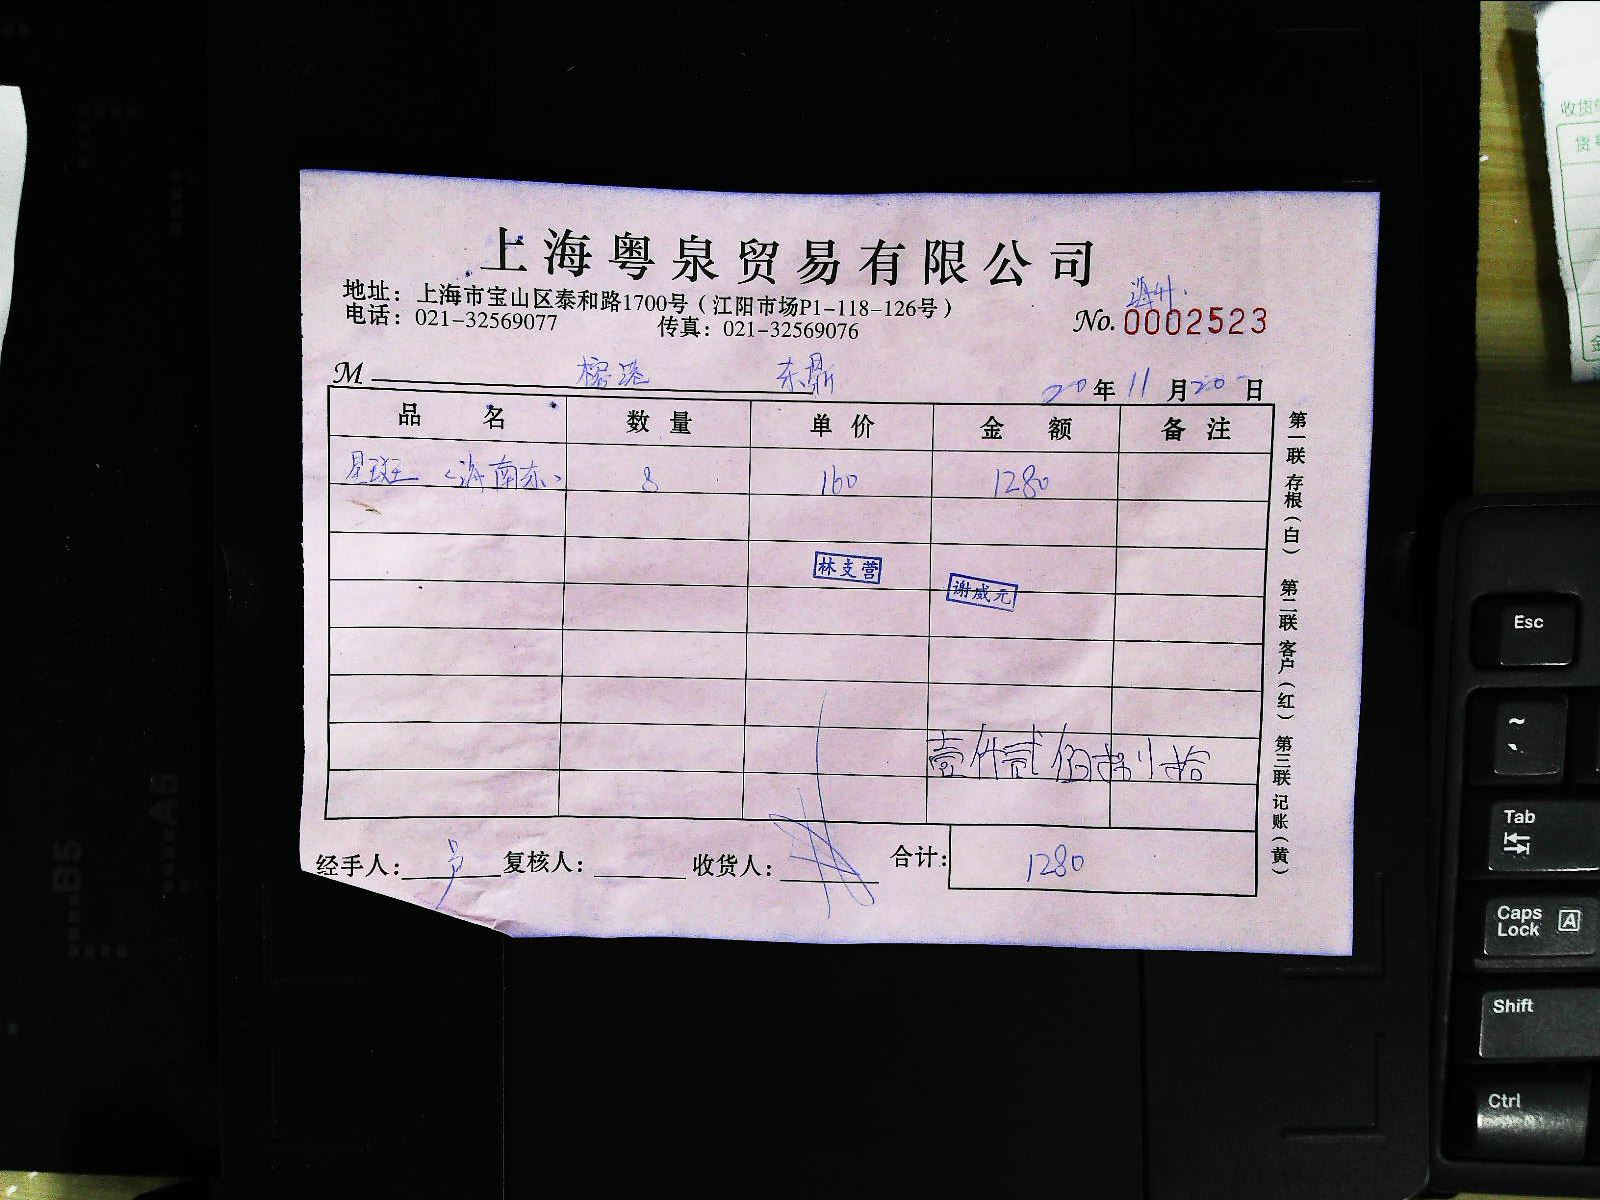 上海粤泉贸易有限公司
地址：上海市宝山区泰和路1700号（江阳市场P1-118-126号）
电话：021-32569077 传真：021-32569076
No. 0002523
M 榕港 东鼎 20年11月20日
品名 数量 单价 金额 备注
星斑（海南东） 8 160 1280
林支营
谢威元
壹仟贰佰捌拾
经手人： 复核人： 收货人： 合计：1280
第一联 存根（白） 第二联 客户（红） 第三联 记账（黄）
收货
货号
金
B5
A5
Esc
~
Tab
Caps Lock A
Shift
Ctrl